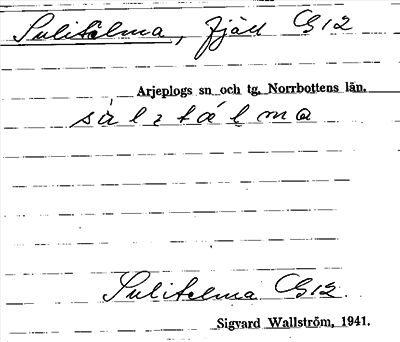 Sulitelma, fjäll G12
Arjeplogs sn och tg. Norrbottens län.
Sulitelma G12.
Sigvard Wallström, 1941.